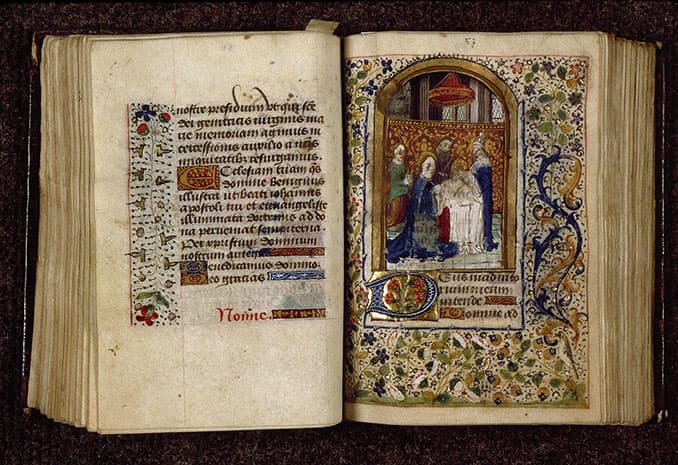 nostre presidium ut qui sce
dei genitricis virginis ma
rie memoriam agimus in
tercessionis auxilio a nris
iniquitatibz resurgamus
Ecclesiam tuam qs
domine benignus
illustra ut beati iohannis
apostoli tui et ewangeliste
illuminata doctrinis ad do
na perveniat sempiterna
Per xpristum dominum
nostrum amen
Benedicamus domino
Deo gracias
Nonne.
57
Deus in adiuto
rium meum
intende
Domine ad